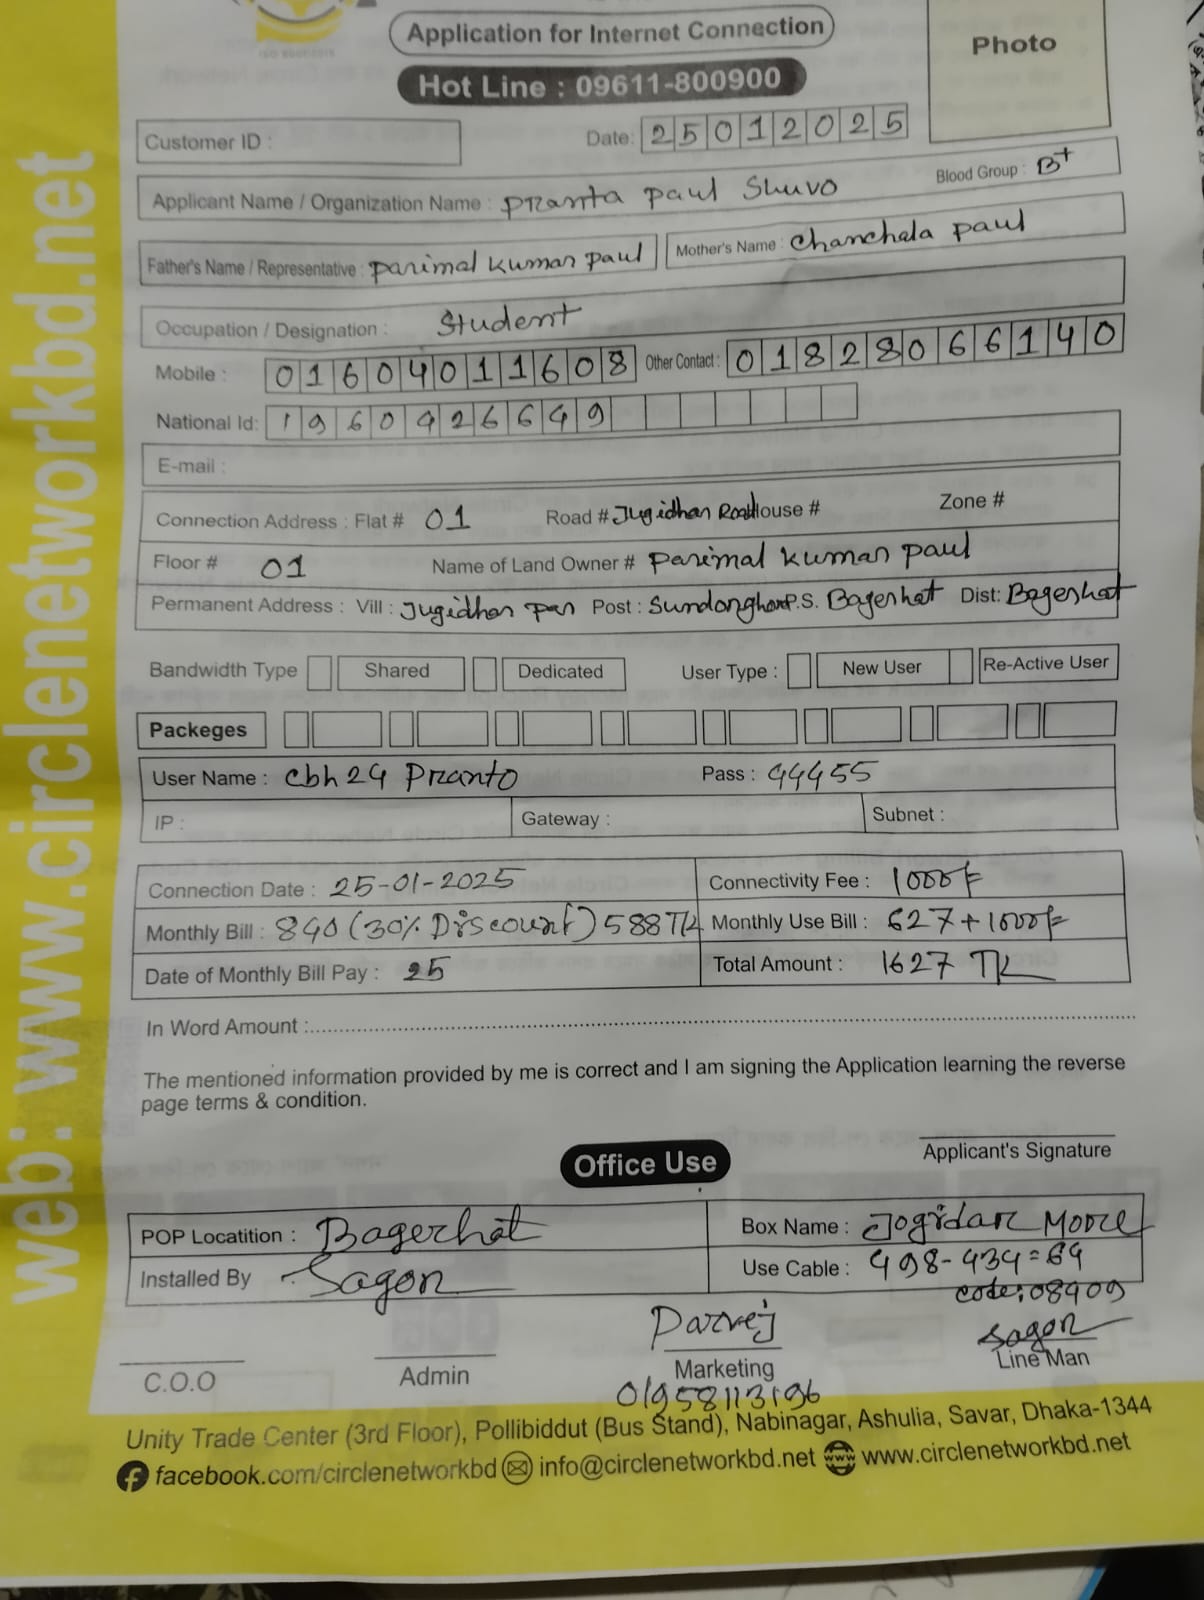 ISO 9001:2015
Application for Internet Connection
Photo
Hot Line : 09611-800900
Customer ID :
Date: 25012025
Applicant Name / Organization Name : Pranta Paul Shuvo Blood Group : B+
Father's Name / Representative : Parimal Kumar Paul Mother's Name : Chanchala Paul
Occupation / Designation : Student
Mobile : 01604011608 Other Contact : 01828066140
National Id: 1960426649
E-mail :
Connection Address : Flat # 01 Road # Jugidhar Road House # Zone #
Floor # 01 Name of Land Owner # Parimal Kumar Paul
Permanent Address : Vill : Jugidhar par Post : Sundarghona P.S. Bagerhat Dist: Bagerhat
Bandwidth Type Shared Dedicated User Type : New User Re-Active User
Packeges
User Name : cbh24 Pranto Pass : 44455
IP : Gateway : Subnet :
Connection Date : 25-01-2025 Connectivity Fee : 1000/=
Monthly Bill : 840 (30% Discount) 588 TK Monthly Use Bill : 627 + 1000/=
Date of Monthly Bill Pay : 25 Total Amount : 1627 TK
In Word Amount :
The mentioned information provided by me is correct and I am signing the Application learning the reverse
page terms & condition.
Applicant's Signature
Office Use
POP Locatition : Bagerhat Box Name : Jogidar More
Installed By Sagor Use Cable : 498-434=64
code: 08409
Parvej Sagor
C.O.O Admin Marketing Line Man
01958113196
Unity Trade Center (3rd Floor), Pollibiddut (Bus Stand), Nabinagar, Ashulia, Savar, Dhaka-1344
facebook.com/circlenetworkbd info@circlenetworkbd.net www.circlenetworkbd.net
web: www.circlenetworkbd.net